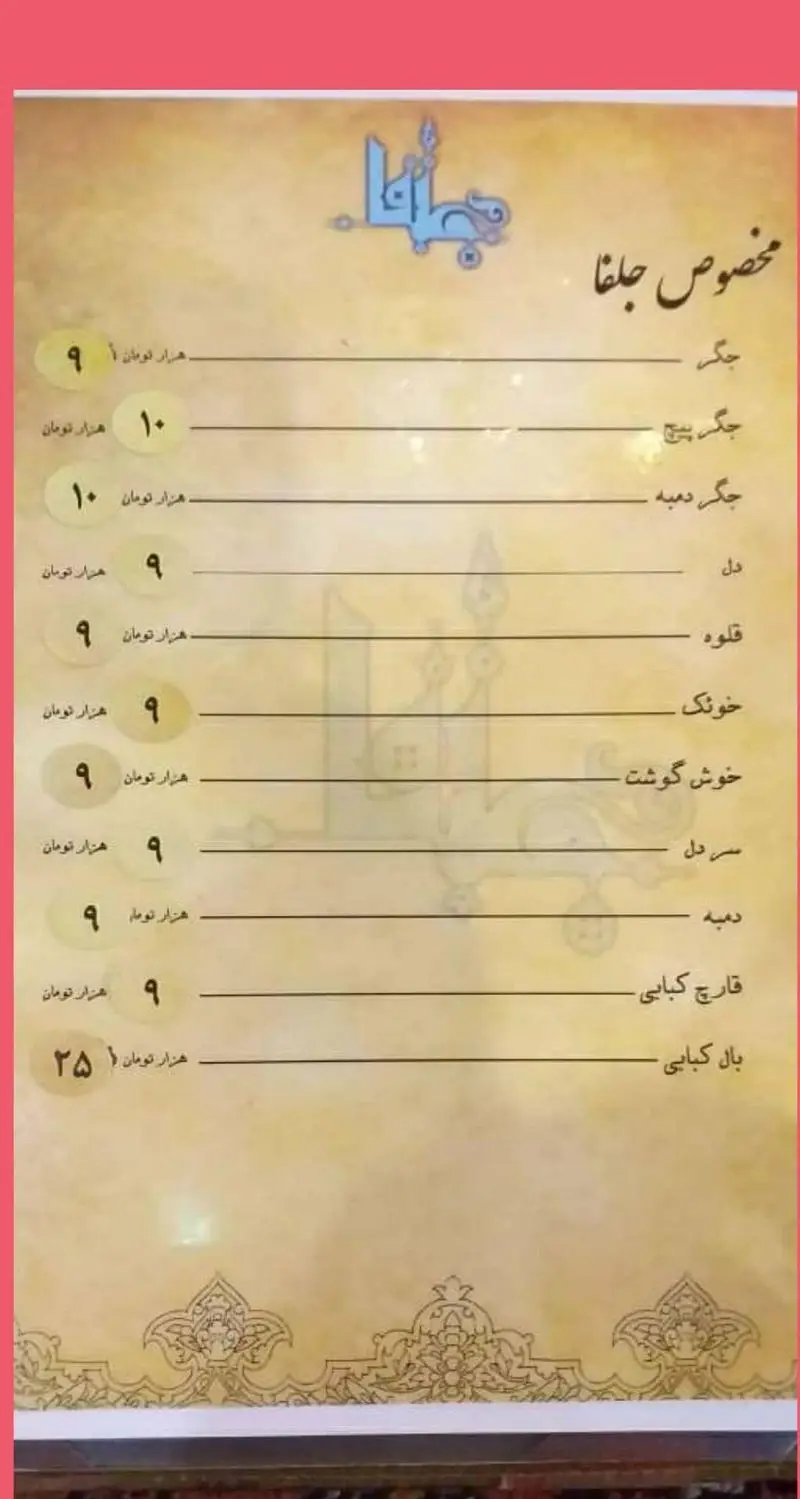 جلفا
مخصوص جلفا
جگر هزار تومان ۹
جگر پیچ ۱۰ هزار تومان
جگر دمبه هزار تومان ۱۰
دل ۹ هزار تومان
قلوه هزار تومان ۹
خوئک ۹ هزار تومان
خوش گوشت هزار تومان ۹
سر دل ۹ هزار تومان
دمبه هزار توما ۹
قارچ کبابی ۹ هزار تومان
بال کبابی هزار تومان ۲۵